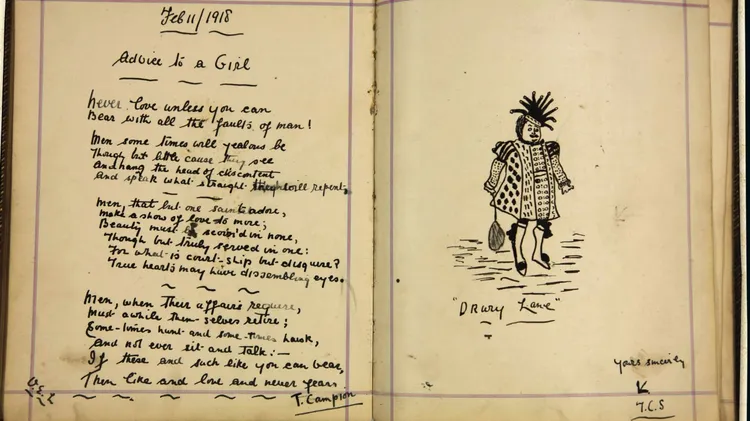 Feb 11/1918
Advice to a Girl
Never love unless you can
Bear with all the faults of man!
Men some times will yealous be
Though but little cause they see
And hang the head of discontent
And speak what straight will repent
Men, that but one saint adore,
Make a show of love to more;
Beauty must be scorn'd in none,
Though but truly served in one:
For what is court-ship but disguise?
True hearts may have dissembling eyes.
Men, when their affairs require,
Must awhile them-selves retire;
Some-times hunt and some-times hawk,
And not ever sit and talk:-
If these and such like you can bear,
Then like and love and never fear.
T. Campion
"DRury Lane"
yours sincerely
T.C.S